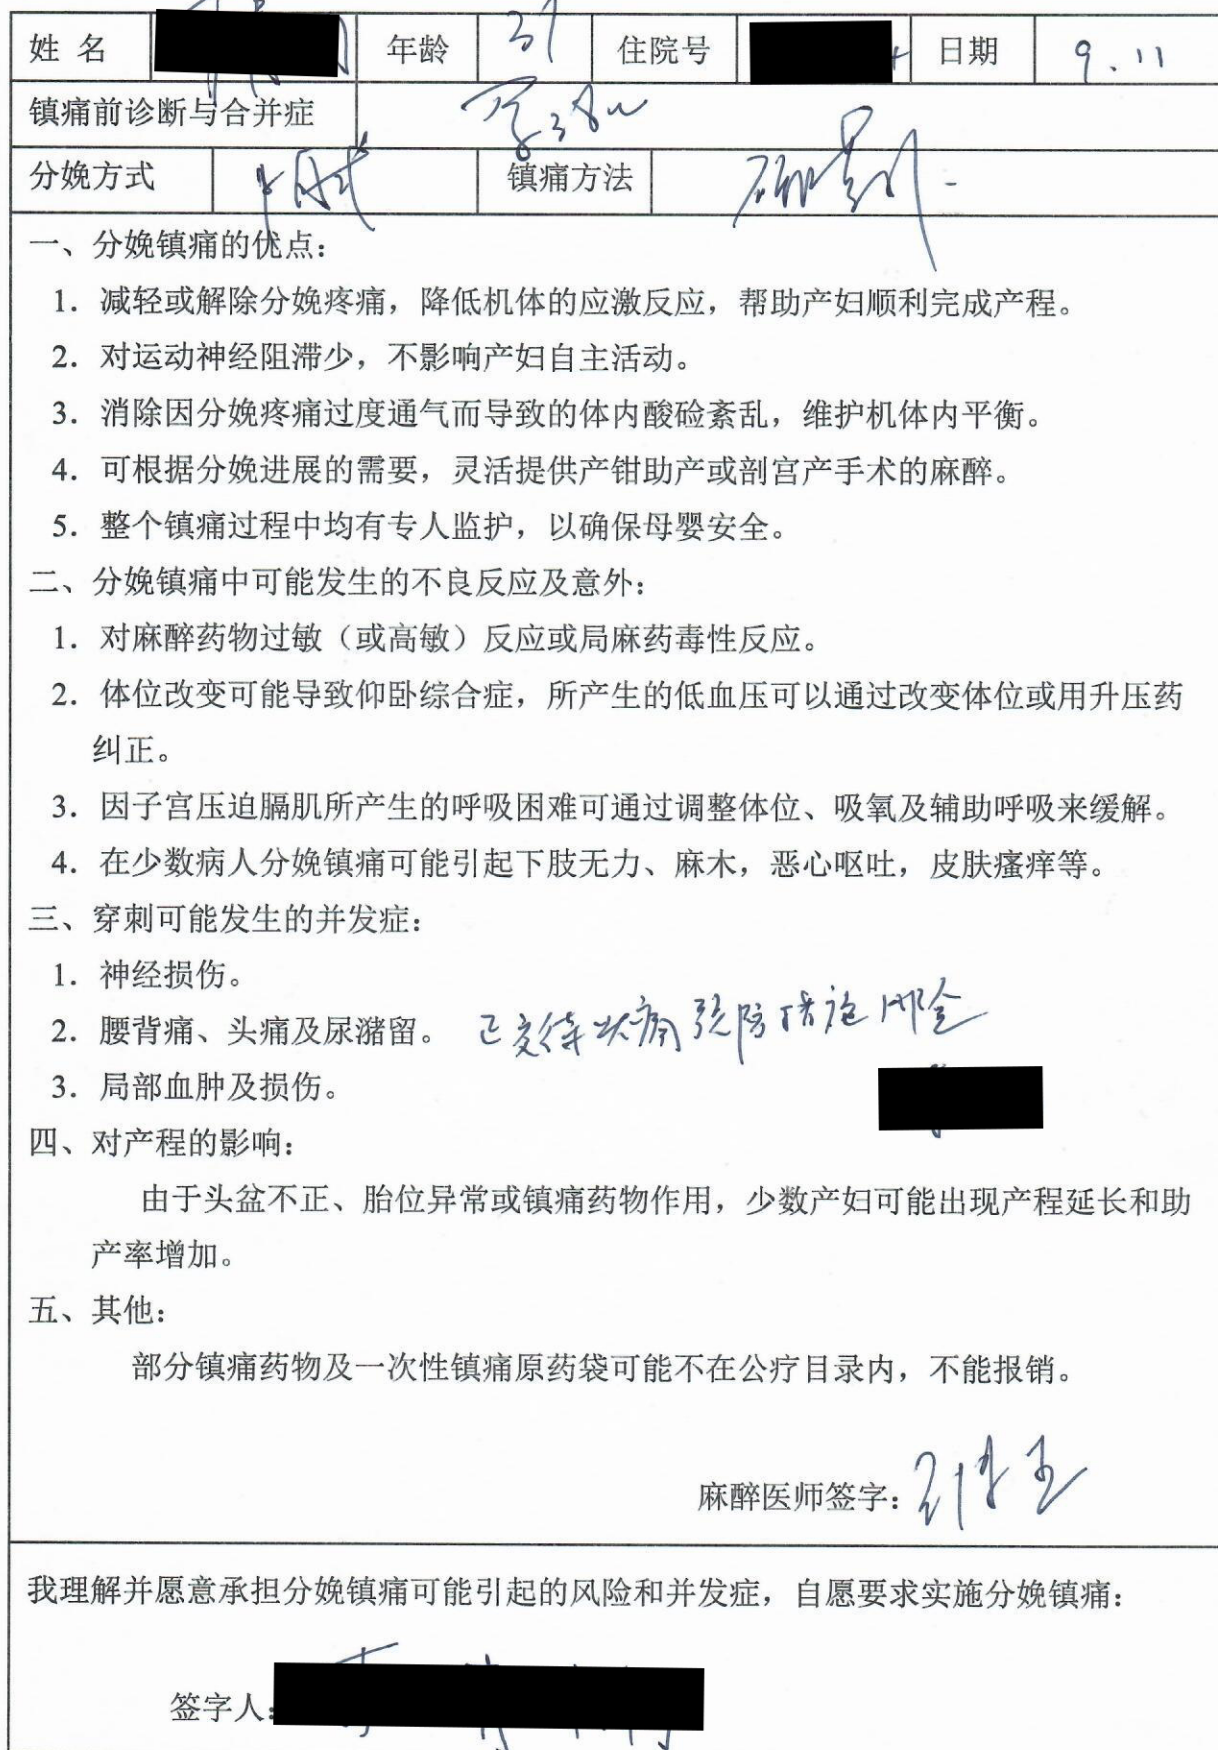 姓 名 年龄 31 住院号 日期 9.11
镇痛前诊断与合并症
分娩方式 镇痛方法
一、分娩镇痛的优点：
1．减轻或解除分娩疼痛，降低机体的应激反应，帮助产妇顺利完成产程。
2．对运动神经阻滞少，不影响产妇自主活动。
3．消除因分娩疼痛过度通气而导致的体内酸硷紊乱，维护机体内平衡。
4．可根据分娩进展的需要，灵活提供产钳助产或剖宫产手术的麻醉。
5．整个镇痛过程中均有专人监护，以确保母婴安全。
二、分娩镇痛中可能发生的不良反应及意外：
1．对麻醉药物过敏（或高敏）反应或局麻药毒性反应。
2．体位改变可能导致仰卧综合症，所产生的低血压可以通过改变体位或用升压药
纠正。
3．因子宫压迫膈肌所产生的呼吸困难可通过调整体位、吸氧及辅助呼吸来缓解。
4．在少数病人分娩镇痛可能引起下肢无力、麻木，恶心呕吐，皮肤瘙痒等。
三、穿刺可能发生的并发症：
1．神经损伤。
2．腰背痛、头痛及尿潴留。 已交待 措施
3．局部血肿及损伤。
四、对产程的影响：
由于头盆不正、胎位异常或镇痛药物作用，少数产妇可能出现产程延长和助
产率增加。
五、其他：
部分镇痛药物及一次性镇痛原药袋可能不在公疗目录内，不能报销。
麻醉医师签字：
我理解并愿意承担分娩镇痛可能引起的风险和并发症，自愿要求实施分娩镇痛：
签字人：